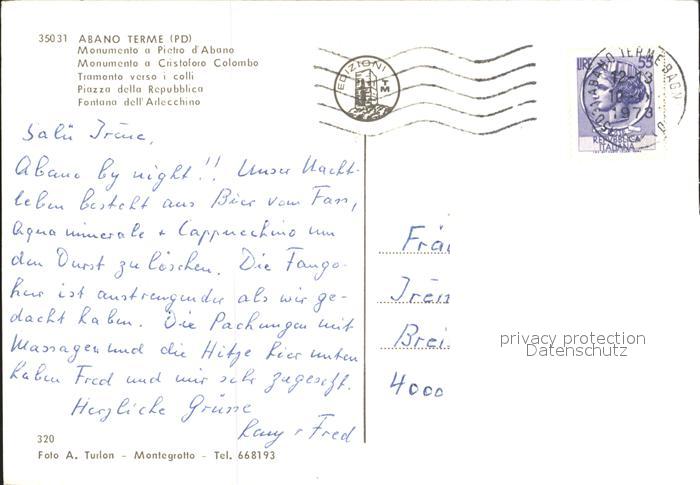 35031 ABANO TERME (PD)
Monumento a Pietro d'Abano
Monumento a Cristoforo Colombo
Tramonto verso i colli
Piazza della Repubblica
Fontana dell'Arlecchino
EDIZIONI
TM
LIRE 55
ABANO TERME-BAGNI
12-13
1973
REPUBBLICA
ITALIANA
Salü Irène,
Abano by night!! Unser Nacht-
leben besteht aus Bier vom Fass,
Aqua minerale + Cappucchino um
den Durst zu löschen. Die Fango-
kur ist anstrengender als wir ge-
dacht haben. Die Packungen mit
Massagen und die Hitze hier unten
haben Fred und mir sehr zugesetzt.
Herzliche Grüsse
+ Fred
Fräu
Irèn
Brei
4000
privacy protection
Datenschutz
320
Foto A. Turlon - Montegrotto - Tel. 668193